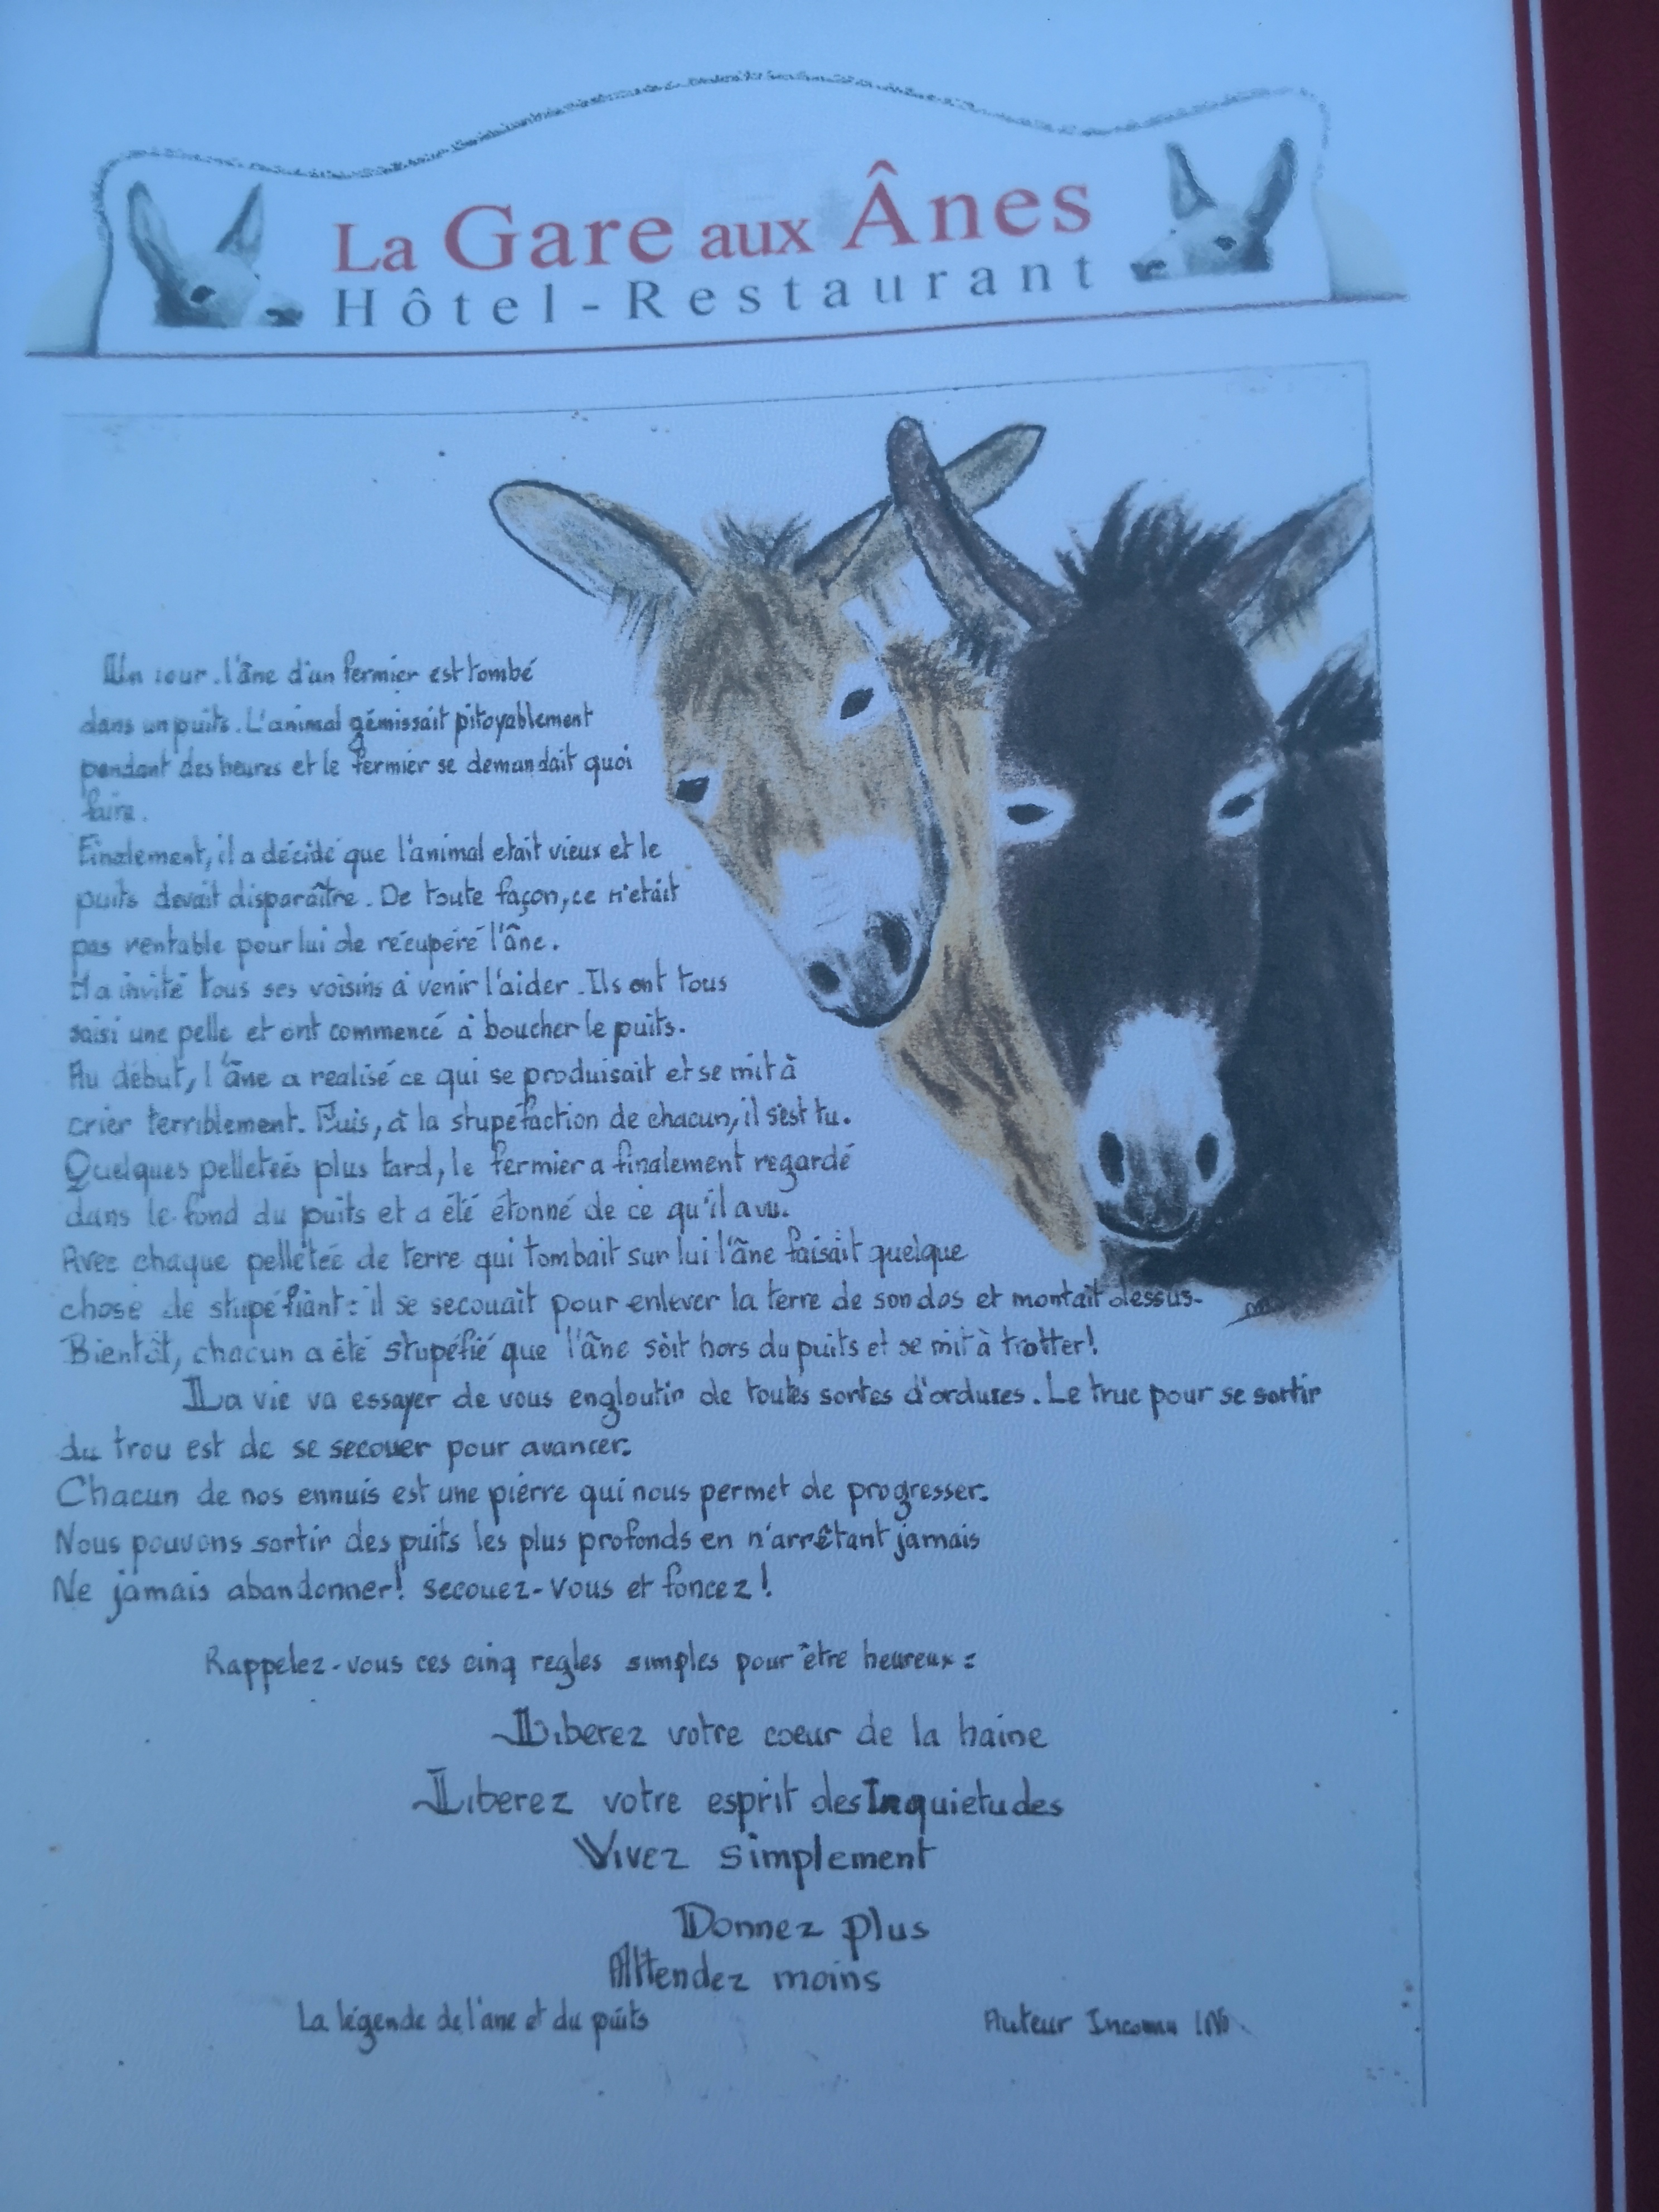 La Gare aux Ânes
Hôtel-Restaurant
Un jour, l'âne d'un fermier est tombé
dans un puits. L'animal gémissait pitoyablement
pendant des heures et le fermier se demandait quoi
faire.
Finalement, il a décidé que l'animal etait vieux et le
puits devait disparaître. De toute façon, ce n'etait
pas rentable pour lui de récupéré l'âne.
Il a invité tous ses voisins à venir l'aider. Ils ont tous
saisi une pelle et ont commencé à boucher le puits.
Au début, l'âne a realisé ce qui se produisait et se mit à
crier terriblement. Puis, à la stupefaction de chacun, il s'est tu.
Quelques pelletées plus tard, le fermier a finalement regardé
dans le fond du puits et a été étonné de ce qu'il a vu.
Avec chaque pelletée de terre qui tombait sur lui l'âne faisait quelque
chose de stupéfiant : il se secouait pour enlever la terre de son dos et montait dessus.
Bientôt, chacun a été stupéfié que l'âne soit hors du puits et se mit à trotter!
La vie va essayer de vous engloutir de toutes sortes d'ordures. Le truc pour se sortir
du trou est de se secouer pour avancer.
Chacun de nos ennuis est une pierre qui nous permet de progresser.
Nous pouvons sortir des puits les plus profonds en n'arrêtant jamais
Ne jamais abandonner! secouez-vous et foncez!
Rappelez-vous ces cinq regles simples pour être heureux :
Liberez votre coeur de la haine
Liberez votre esprit des Inquietudes
Vivez simplement
Donnez plus
Attendez moins
La légende de l'ane et du puits
Auteur Inconnu